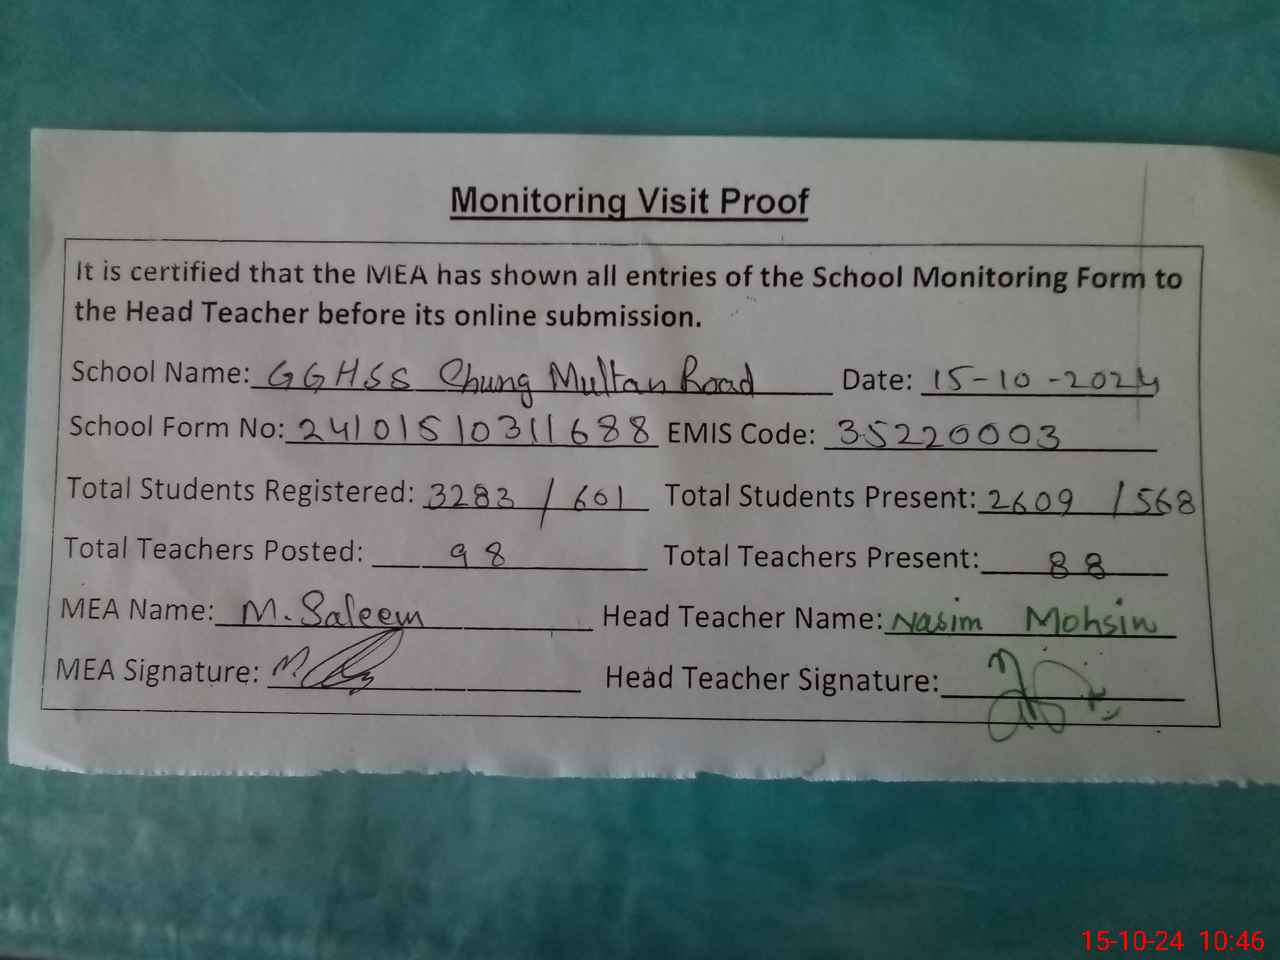 Monitoring Visit Proof
It is certified that the MEA has shown all entries of the School Monitoring Form to
the Head Teacher before its online submission.
School Name: GGHSS Chung Multan Road Date: 15-10-2024
School Form No: 24101510311688 EMIS Code: 35220003
Total Students Registered: 3283 / 601 Total Students Present: 2609 / 568
Total Teachers Posted: 98 Total Teachers Present: 88
MEA Name: M. Saleem Head Teacher Name: Nasim Mohsin
MEA Signature: Head Teacher Signature:
15-10-24 10:46